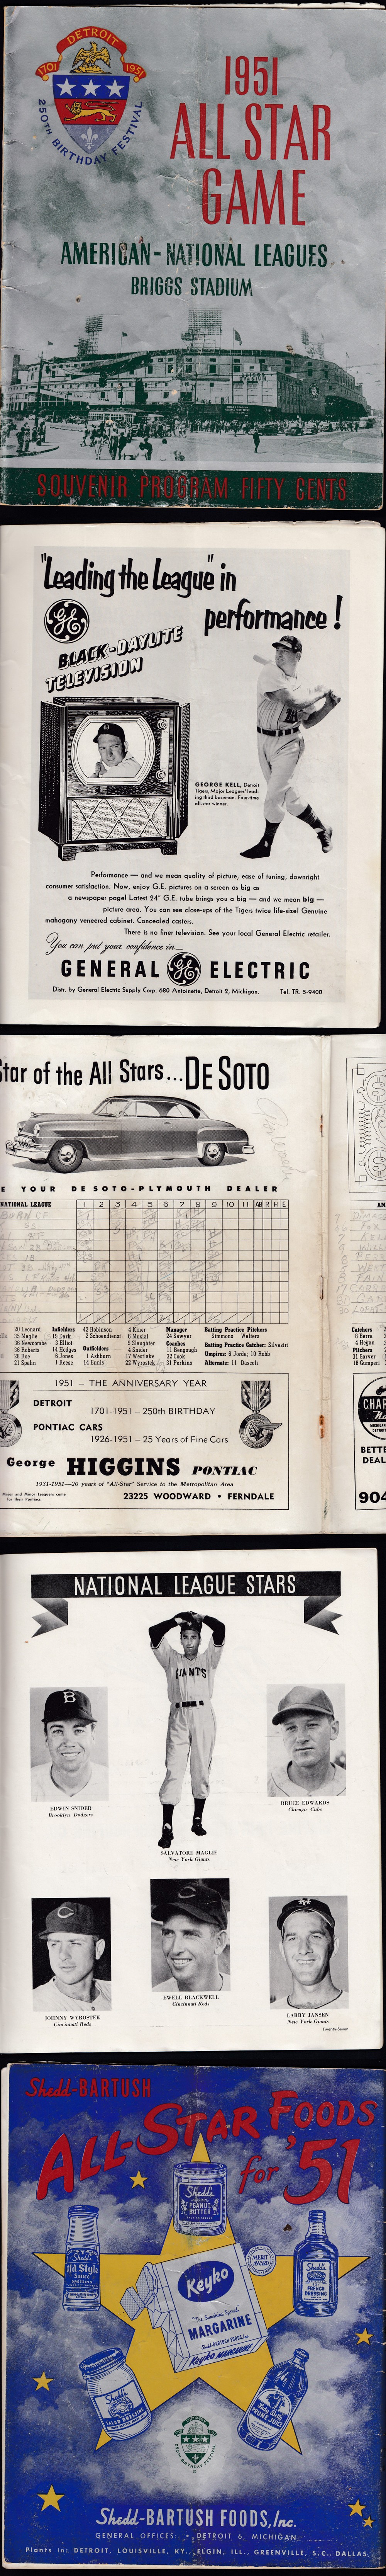 DETROIT
1701 1951
250TH BIRTHDAY FESTIVAL
1951
ALL STAR
GAME
AMERICAN-NATIONAL LEAGUES
BRIGGS STADIUM
SOUVENIR PROGRAM FIFTY CENTS
"Leading the League" in
performance!
GE
BLACK-DAYLITE
TELEVISION
GEORGE KELL, Detroit
Tigers, Major Leagues' lead-
ing third baseman. Four-time
all-star winner.
Performance — and we mean quality of picture, ease of tuning, downright
consumer satisfaction. Now, enjoy G.E. pictures on a screen as big as
a newspaper page! Latest 24" G.E. tube brings you a big — and we mean big —
picture area. You can see close-ups of the Tigers twice life-size! Genuine
mahogany veneered cabinet. Concealed casters.
There is no finer television. See your local General Electric retailer.
You can put your confidence in—
GENERAL GE ELECTRIC
Distr. by General Electric Supply Corp. 680 Antoinette, Detroit 2, Michigan. Tel. TR. 5-9400
Star of the All Stars...DE SOTO
E YOUR DE SOTO-PLYMOUTH DEALER
NATIONAL LEAGUE 1 2 3 4 5 6 7 8 9 10 11 AB R H E
20 Leonard
35 Maglie
36 Newcombe
36 Roberts
28 Roe
21 Spahn
Infielders
19 Dark
3 Elliot
14 Hodges
6 Jones
1 Reese
42 Robinson
2 Schoendienst
Outfielders
1 Ashburn
14 Ennis
4 Kiner
6 Musial
9 Slaughter
4 Snider
17 Westlake
22 Wyrostek
Manager
24 Sawyer
Coaches
11 Bengough
32 Cook
31 Perkins
Batting Practice Pitchers
Simmons Walters
Batting Practice Catcher: Silvestri
Umpires: 6 Jorda; 10 Robb
Alternate: 11 Dascoli
1951 — THE ANNIVERSARY YEAR
DETROIT
1701-1951 — 250th BIRTHDAY
PONTIAC CARS
1926-1951 — 25 Years of Fine Cars
George HIGGINS PONTIAC
1931-1951—20 years of "All-Star" Service to the Metropolitan Area
Major and Minor Leaguers come
for their Pontiacs
23225 WOODWARD • FERNDALE
AM
Catchers
8 Berra
4 Hegan
Pitchers
31 Garver
18 Gumpert
CHAR
BETTE
DEAL
904
NATIONAL LEAGUE STARS
GIANTS
B
EDWIN SNIDER
Brooklyn Dodgers
BRUCE EDWARDS
Chicago Cubs
SALVATORE MAGLIE
New York Giants
C
C
JOHNNY WYROSTEK
Cincinnati Reds
EWELL BLACKWELL
Cincinnati Reds
LARRY JANSEN
New York Giants
Twenty-Seven
Shedd-BARTUSH
ALL-STAR FOODS
for '51
Shedd's
PEANUT
BUTTER
Shedd's
Old Style
SAUCE
DRESSING
MERIT
AWARD
Shedd's
FRENCH
DRESSING
Keyko
MARGARINE
Shedd-BARTUSH FOODS, Inc.
Keyko MARGARINE
Shedd's
SALAD DRESSING
PRUNE JUICE
Shedd-BARTUSH FOODS, Inc.
GENERAL OFFICES: • DETROIT 6, MICHIGAN
Plants in: DETROIT, LOUISVILLE, KY., ELGIN, ILL., GREENVILLE, S.C., DALLAS